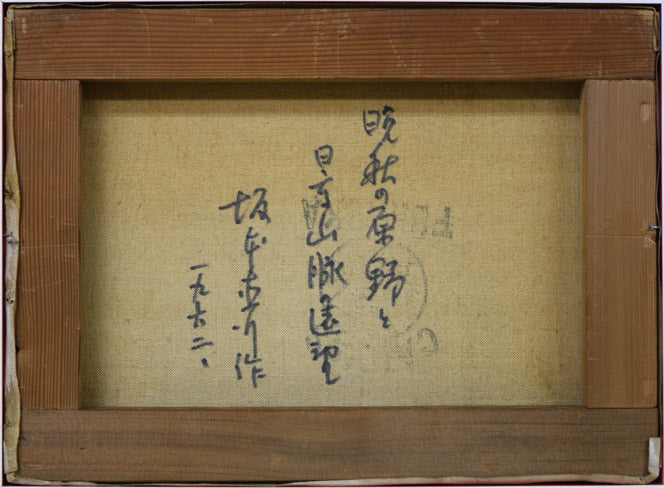 晩秋の原野と
日高山脈遠望
坂本直行作
一九六二、